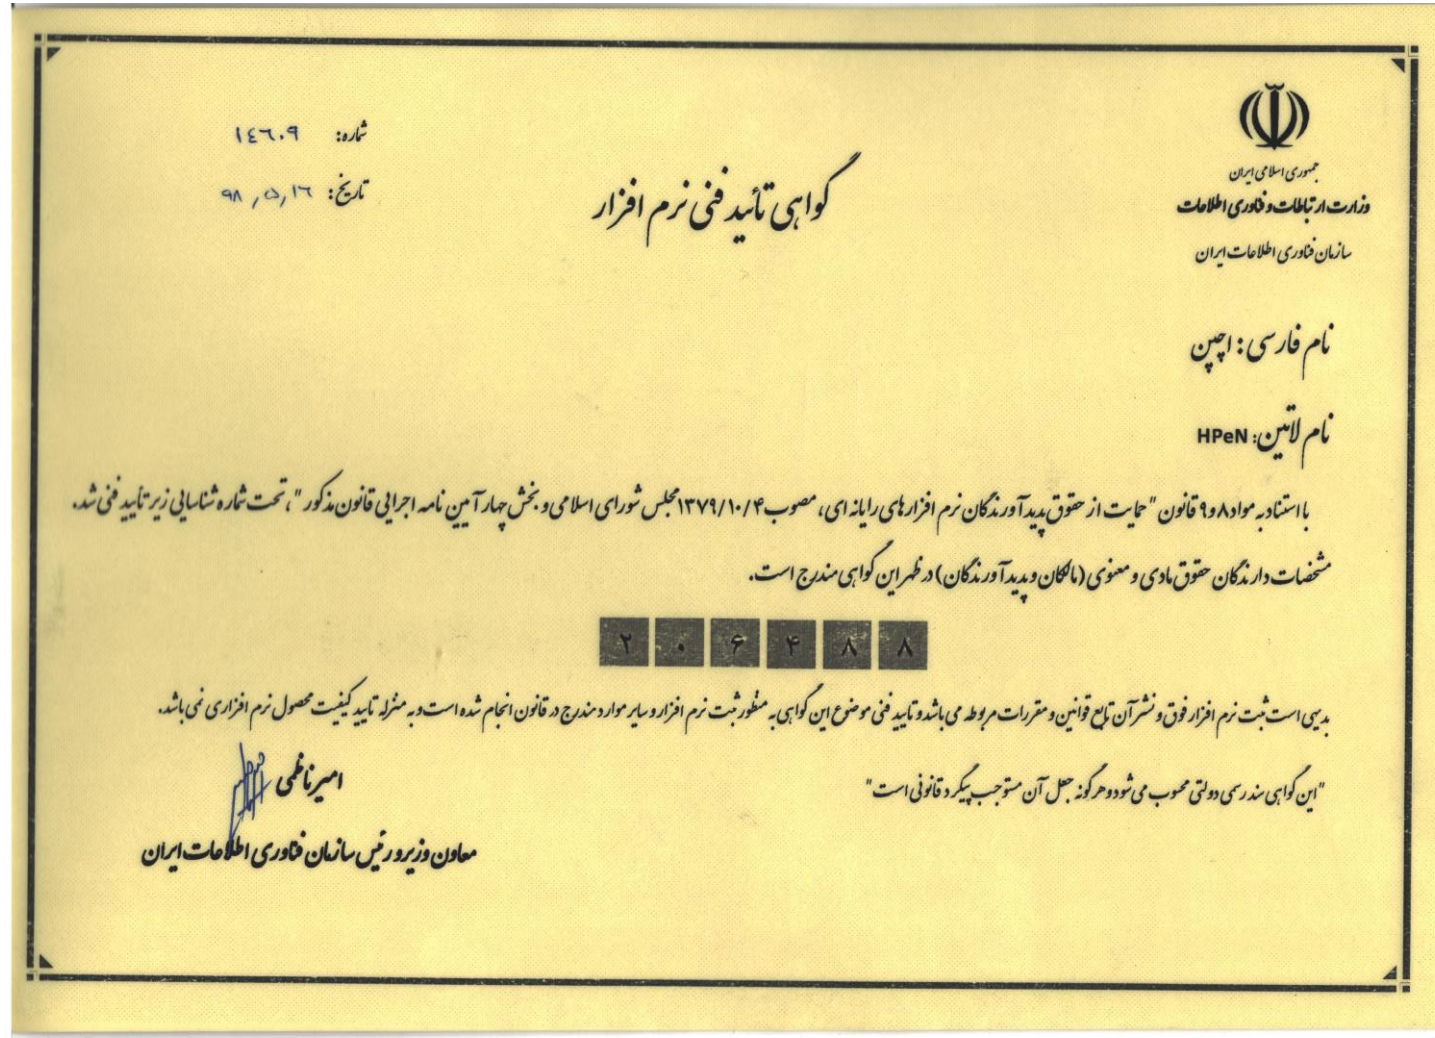 جمهوری اسلامی ایران
وزارت ارتباطات و فناوری اطلاعات
سازمان فناوری اطلاعات ایران
شماره: ١٤٦٠٩
تاریخ: ٩٨,٥,١٦
گواهی تائید فنی نرم افزار
نام فارسی: اچپن
نام لاتین: HPeN
با استناد به مواد ۸ و ۹ قانون "حمایت از حقوق پدید آورندگان نرم افزارهای رایانه ای، مصوب ۱۳۷۹/۱۰/۴ مجلس شورای اسلامی و بخش چهار آیین نامه اجرایی قانون مذکور"، تحت شماره شناسایی زیر تأیید فنی شد.
مشخصات دارندگان حقوق مادی و معنوی (مالکان و پدید آورندگان) در ظهر این گواهی مندرج است.
۲۰۶۴۸۸
بدیهی است ثبت نرم افزار فوق و نشر آن تابع قوانین و مقررات مربوطه می باشد و تایید فنی موضوع این گواهی به منظور ثبت نرم افزار و سایر موارد مندرج در قانون انجام شده است و به منزله تایید کیفیت محصول نرم افزاری نمی باشد.
"این گواهی سند رسمی دولتی محسوب می شود و هرگونه جعل آن مستوجب پیگرد قانونی است"
امیر ناظمی
معاون وزیر و رئیس سازمان فناوری اطلاعات ایران